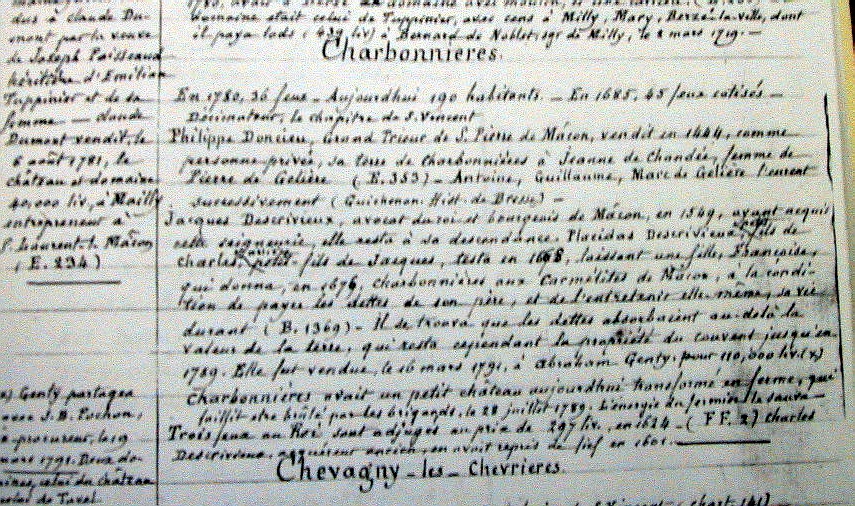 dus à claude Du-
mont par la veuve
de Joseph Paisseaud
héritière d'Emilian
Tuppinier et de sa
femme — claude
Dumont vendit, le
6 août 1781, le
château et domaine
40,000 liv, à Mailly
entrepreneur à
S. Laurent-lz Mâcon
( E. 234 )
Genty partagea
avec J. B. Pochon,
procureur, le 19
mars 1791. Deux do-
maines, celui du château
celui de Tavel
domaine était celui de Tuppinier, avec cens à Milly, Mary, Berzé-la-ville, dont
il paya lods ( 439 liv) à Bernard de Noblet, sgr de Milly, le 2 mars 1719. —
Charbonnieres.
En 1780, 36 feux — Aujourdhui 190 habitants. — En 1685, 45 feux cotisés —
Décimateur, le chapitre de S. Vincent
Philippe Doncieu, Grand Prieur de S. Pierre de Mâcon, vendit en 1444, comme
personne privée, sa terre de Charbonnières à Jeanne de Chandée, femme de
Pierre de Gelière ( E. 353 ) — Antoine, Guillaume, Marc de Gelière l'eurent
successivement ( Guichenon. Hist. de Bresse ) —
Jacques Descrivieux, avocat du roi et bourgeois de Mâcon, en 1549, ayant acquis
cette seigneurie, elle resta à sa descendance. Placidas Descrivieux, fils de
Charles, petit-fils de Jacques, testa en 1668, laissant une fille, Françoise,
qui donna, en 1676, Charbonnières aux Carmélites de Mâcon, à la condi-
tion de payer les dettes de son père, et de l'entretenir elle-même, sa vie
durant ( B. 1369 ) — Il se trouva que les dettes absorbaient au-delà la
valeur de la terre, qui resta cependant la propriété du couvent jusqu'en
1789. Elle fut vendue, le 16 mars 1791, à Abraham Genty, pour 110,000 liv. (x)
Charbonnières avait un petit château aujourdhui transformé en ferme, qui
faillit etre brûlé par les brigands, le 28 juillet 1789. L'énergie du fermier le sauva —
Trois feux au Roi sont adjugés au prix de 297 liv., en 1624 — ( FF. 2 ) Charles
Descrivieux, acquéreur ancien, en avait repris de fief en 1601.
Chevagny — les — Chevrieres.